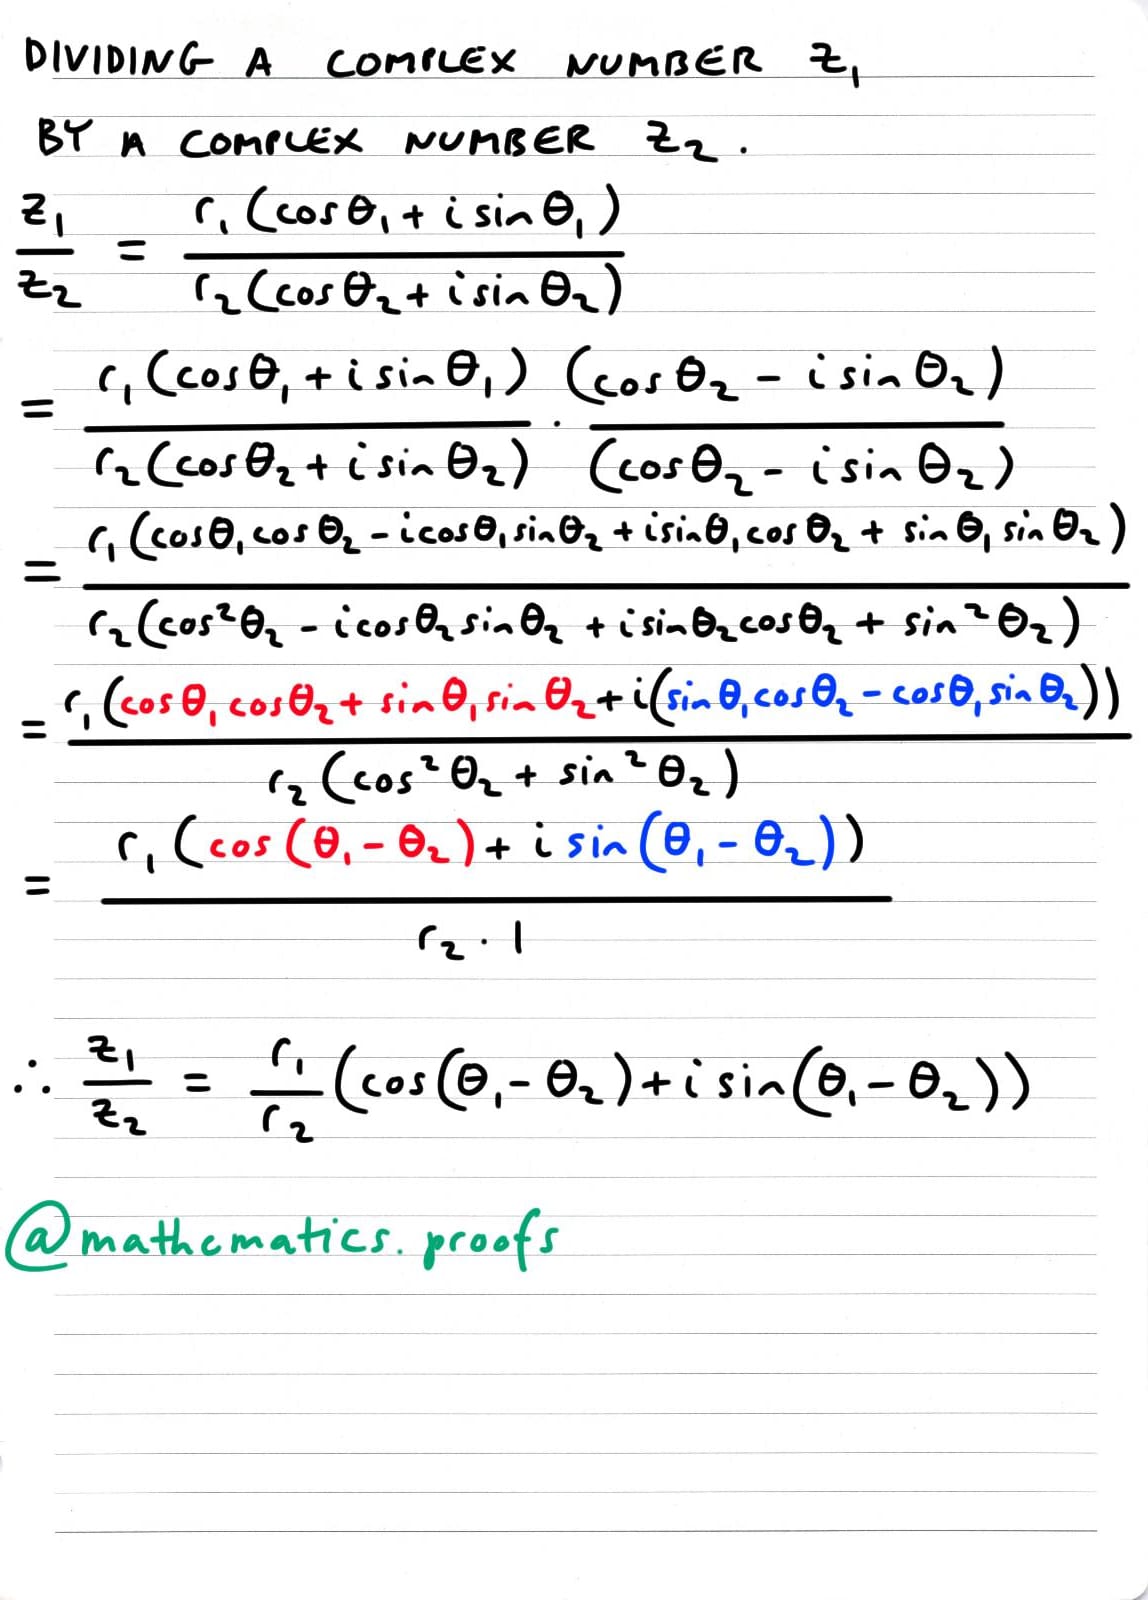 DIVIDING A COMPLEX NUMBER z₁
BY A COMPLEX NUMBER z₂.
z₁/z₂ = r₁(cosθ₁ + i sinθ₁) / r₂(cosθ₂ + i sinθ₂)
= r₁(cosθ₁ + i sinθ₁) / r₂(cosθ₂ + i sinθ₂) · (cosθ₂ - i sinθ₂) / (cosθ₂ - i sinθ₂)
= r₁(cosθ₁cosθ₂ - icosθ₁sinθ₂ + isinθ₁cosθ₂ + sinθ₁sinθ₂) / r₂(cos²θ₂ - icosθ₂sinθ₂ + isinθ₂cosθ₂ + sin²θ₂)
= r₁(cosθ₁cosθ₂ + sinθ₁sinθ₂ + i(sinθ₁cosθ₂ - cosθ₁sinθ₂)) / r₂(cos²θ₂ + sin²θ₂)
= r₁(cos(θ₁ - θ₂) + i sin(θ₁ - θ₂)) / r₂ · 1
∴ z₁/z₂ = r₁/r₂ (cos(θ₁ - θ₂) + i sin(θ₁ - θ₂))
@mathematics.proofs